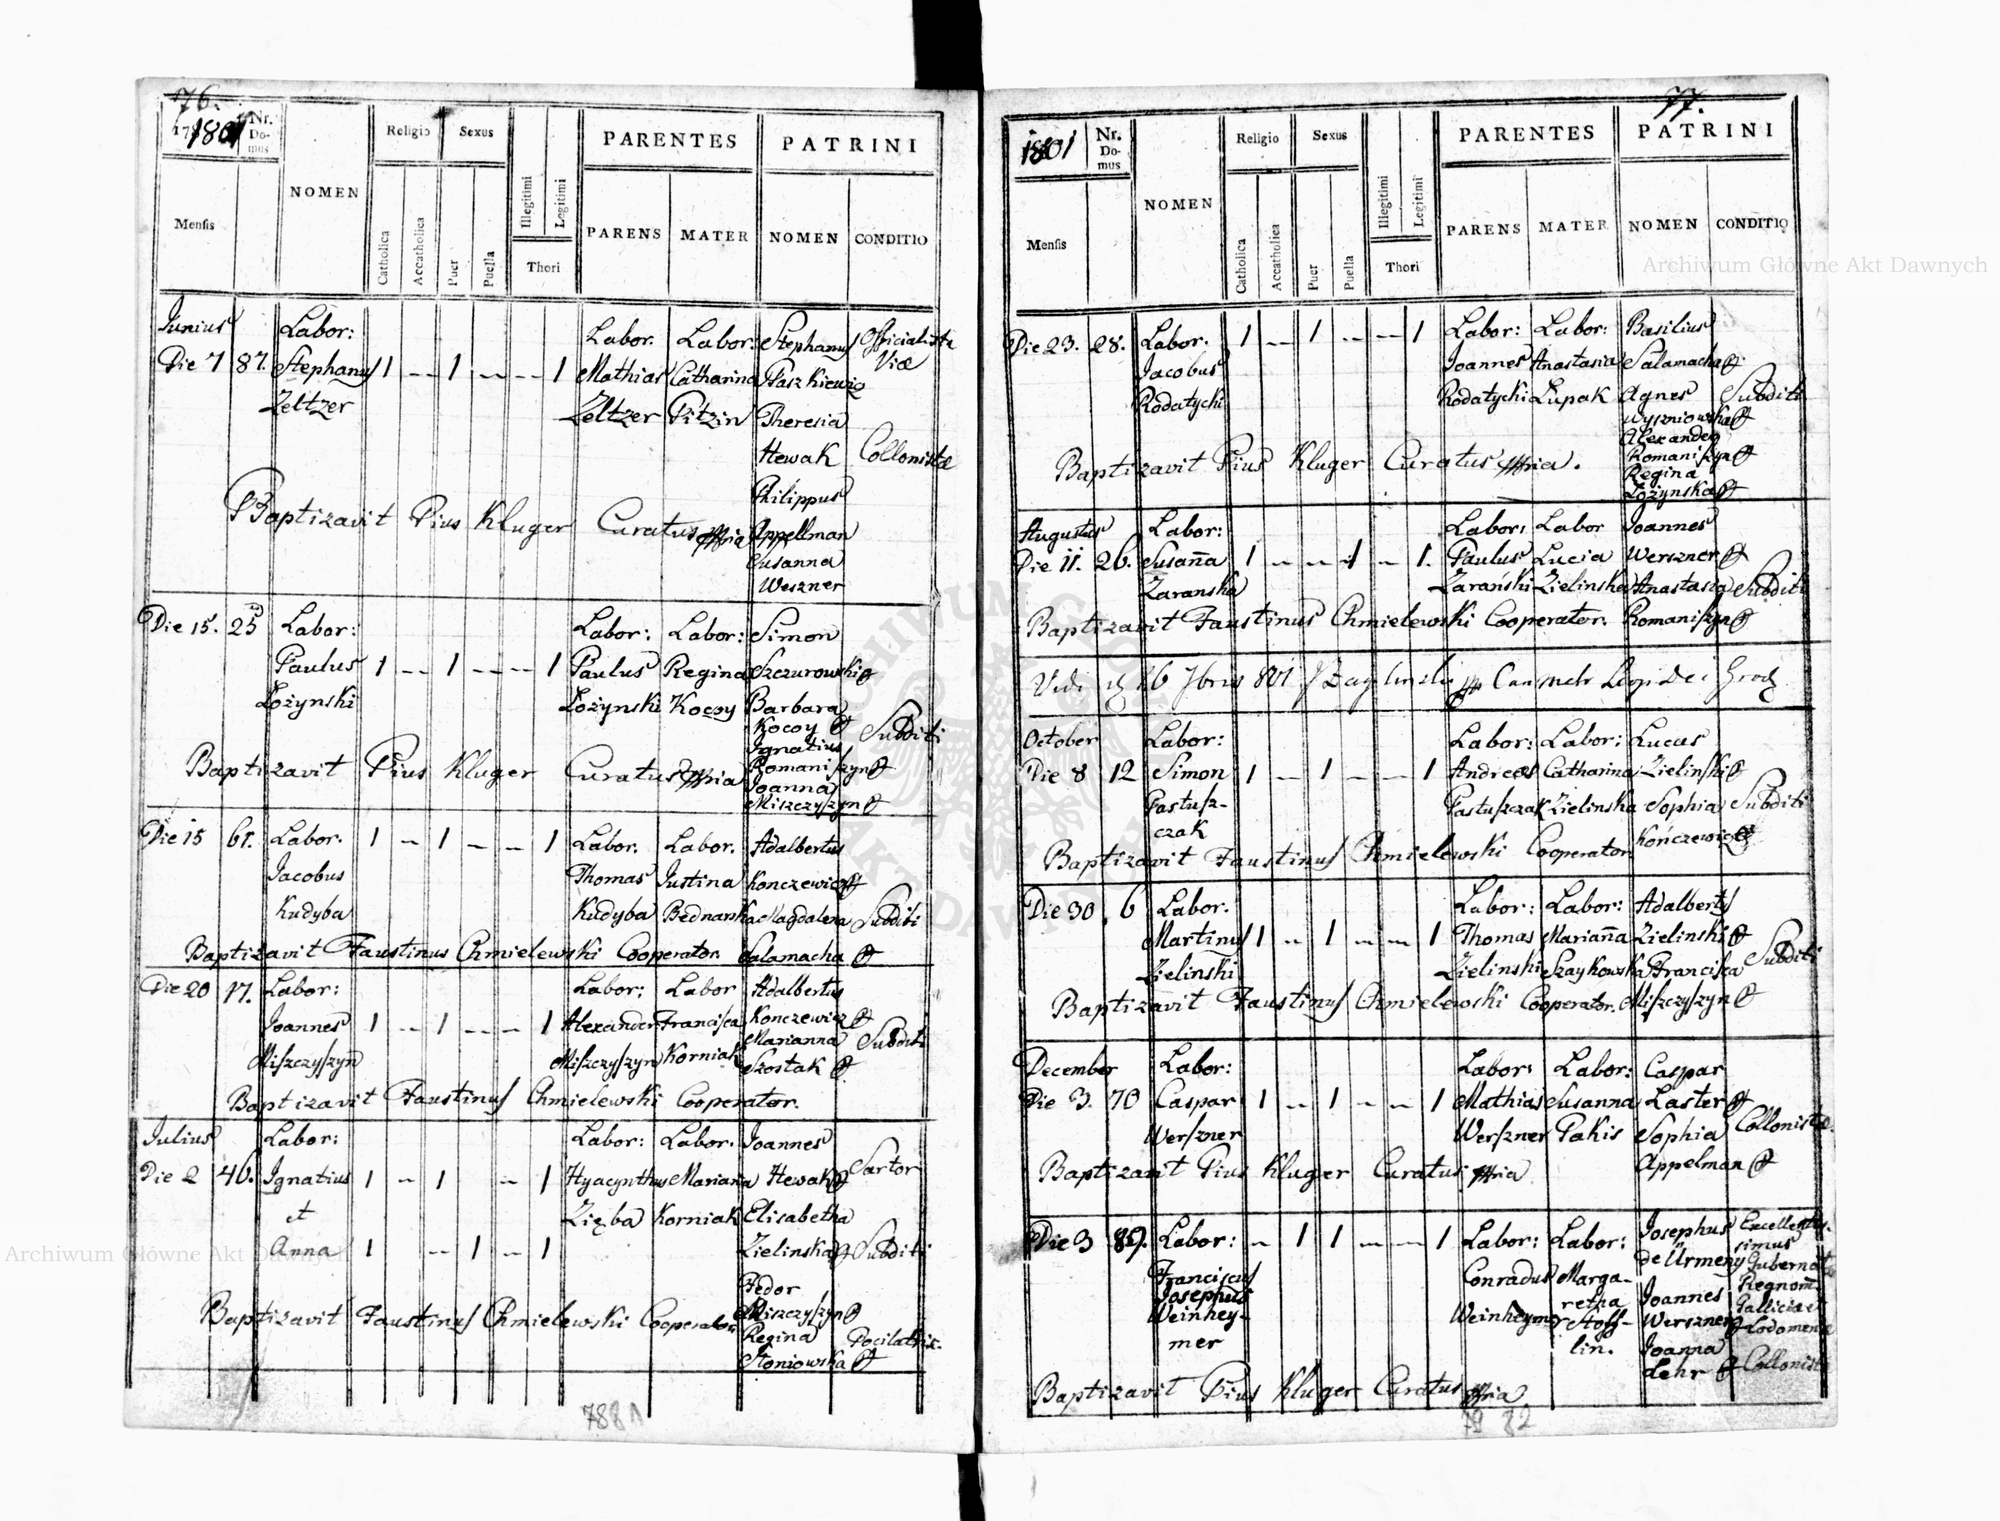 76.
1801
Nr. Domus
NOMEN
Religio
Sexus
PARENTES
PATRINI
Mensis
Catholica
Accatholica
Puer
Puella
Illegitimi
Legitimi
Thori
PARENS
MATER
NOMEN
CONDITIO
Junius Labor: Labor. Labor: Stephanus Officialista
Die 7 87. Stephanus 1 -- 1 -- -- 1 Mathias Catharina Paszkiewic Viæ
Zeltzer Zeltzer Pitzin Theresia
Hewak Collonistæ
Philippus
Baptizavit Pius Kluger Curatus mpria Appellman
Susanna
Weszner
Die 15. 25 Labor: Labor: Labor: Simon
Paulus 1 -- 1 -- -- 1 Paulus Regina Szczurowski
Łożynski Łożynski Kocoy Barbara
Kocoy Subditi
Ignatius
Baptizavit Pius Kluger Curatus mpria Romaniszyn
Joanna
Miszczyszyn
Die 15 61. Labor. 1 - 1 - - 1 Labor. Labor. Adalbertus
Jacobus Thomas Justina Konczewicz
Kudyba Kudyba Bednarska Magdalena Subditi
Baptizavit Faustinus Chmielewski Cooperator. Salamacha
Die 20 17. Labor: Labor: Labor Adalbertus
Joannes 1 -- 1 -- - 1 Alexander Francisca Konczewicz
Marianna Subditi
Miszczyszyn Miszczyszyn Korniak Szostak
Baptizavit Faustinus Chmielewski Cooperator.
Julius Labor: Labor: Labor. Joannes
Die 2 46. Ignatius 1 - 1 - 1 Hyacynthus Marianna Hewak Sartor
et Zięba Korniak Elisabetha
Anna 1 -- 1 - 1 Zielinska Subditi
Fedor
Baptizavit Faustinus Chmielewski Cooperator Miszczyszyn
Regina Pocilatrix.
Słoniowska
7881
77.
1801
Nr. Domus
NOMEN
Religio
Sexus
PARENTES
PATRINI
Mensis
Catholica
Accatholica
Puer
Puella
Illegitimi
Legitimi
Thori
PARENS
MATER
NOMEN
CONDITIO
Die 23. 28. Labor. 1 -- 1 -- -- 1 Labor: Labor: Basilius
Jacobus Joannes Anastasia Salamacha
Rodatycki Rodatycki Lupak Agnes Subditi
Wyszniowska
Alexander
Baptizavit Pius Kluger Curatus mpria. Romaniszyn
Regina
Łożynska
Augustus Labor: Labor: Labor Joannes
Die 11. 26. Susaña 1 -- -- 1 - 1. Paulus Lucia Werszner
Zaranska Zarański Zielinska Anastasia Subditi
Baptizavit Faustinus Chmielewski Cooperator. Romaniszyn
Vidi 26 7bris 801
October Labor: Labor: Labor: Lucas
Die 8 12 Simon 1 -- 1 - - 1 Andreas Catharina Zielinski
Pastusz- Pastuszczak Zielinska Sophia Subditi
czak Kończewicz
Baptizavit Faustinus Chmielewski Cooperator
Die 30 6 Labor. Labor: Labor: Adalbertus
Martinus 1 -- 1 -- -- 1 Thomas Mariaña Zielinski
Zielinski Zielinski Szaykowska Francisca Subditi
Baptizavit Faustinus Chmielewski Cooperator. Miszczyszyn
December Labor: Labor: Labor: Caspar
Die 3. 70 Caspar 1 -- 1 -- -- 1 Mathias Susanna Laster
Werszner Werszner Pakis Sophia Collonistæ
Baptizavit Pius Kluger Curatus mpria Appelman
Die 3 89. Labor: -- 1 1 -- -- 1 Labor: Labor: Josephus Excellentis-
simus
Franciscus Conradus Marga- de Ürmeny Gubernat
Josephus retha Regnorũ
Weinhey- Weinheymer Stoff- Joannes Galliciæ et
mer lin. Werszner Lodomeriæ
Joanna
Lehr Collonistæ
Baptizavit Pius Kluger Curatus mpria
79 82
Archiwum Główne Akt Dawnych
Archiwum Główne Akt Dawnych
ARCHIWUM GŁÓWNE AKT DAWNYCH